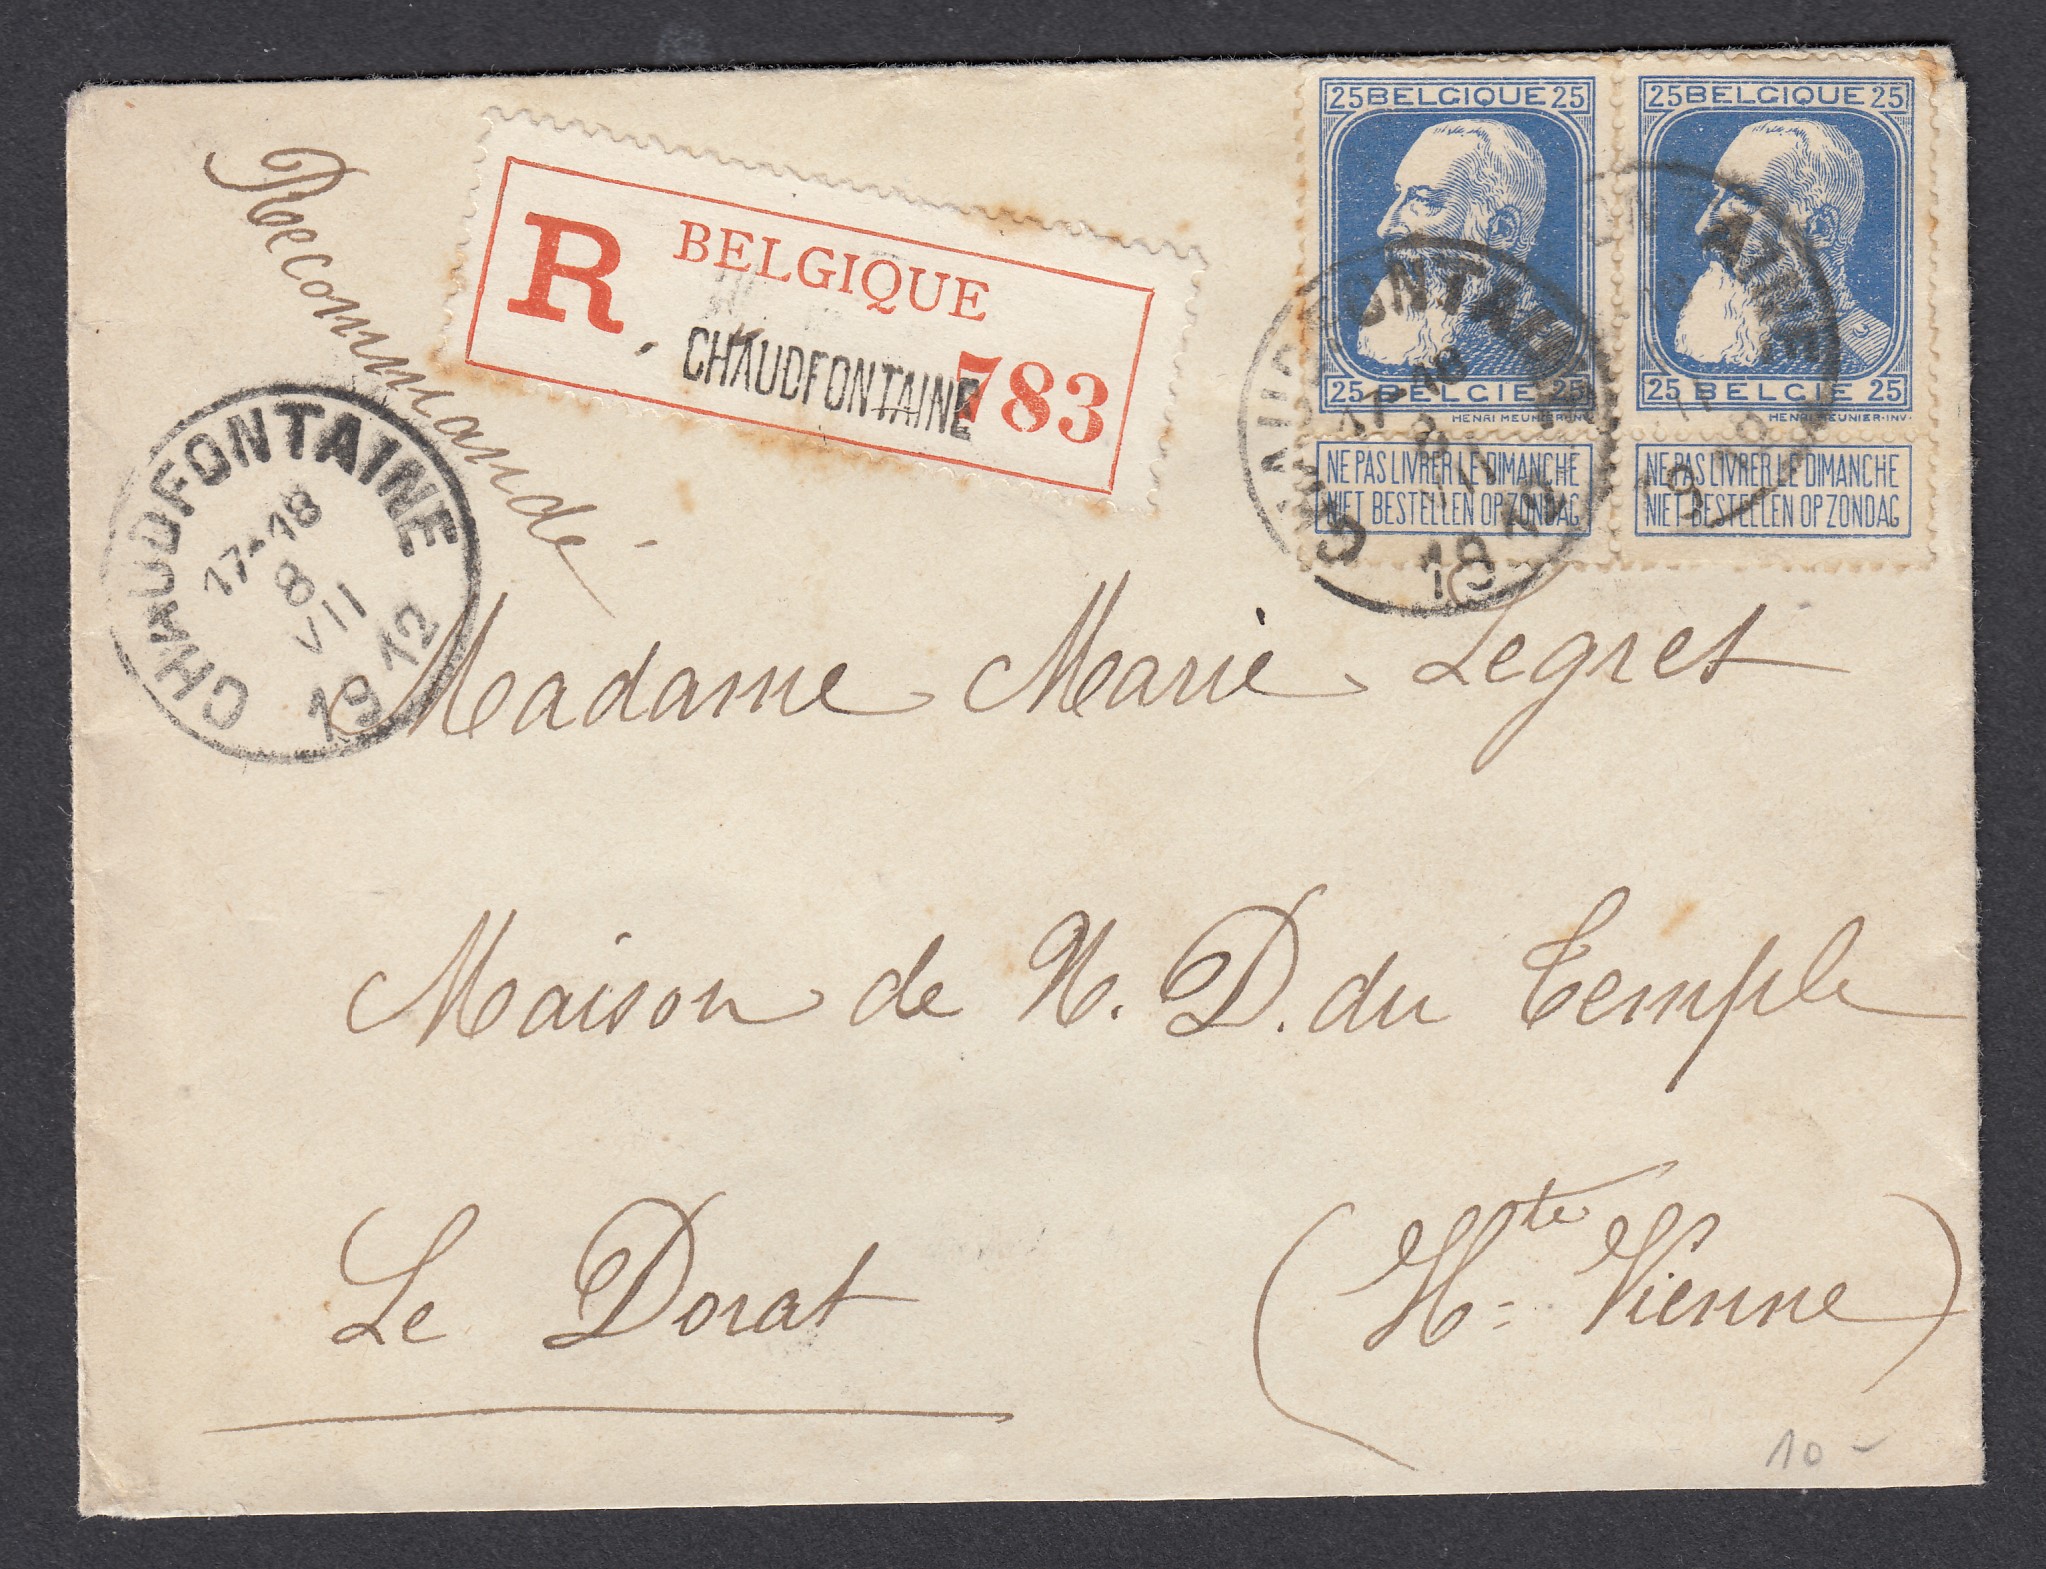 Recommandé
R BELGIQUE
CHAUDFONTAINE
783
25 BELGIQUE 25
25 BELGIE 25
HENRI MEUNIER·INV·
NE PAS LIVRER LE DIMANCHE
NIET BESTELLEN OP ZONDAG
25 BELGIQUE 25
25 BELGIE 25
HENRI MEUNIER·INV·
NE PAS LIVRER LE DIMANCHE
NIET BESTELLEN OP ZONDAG
CHAUDFONTAINE
17-18
8
VII
1912
CHAUDFONTAINE
17-18
8
VII
1912
Madame Marie Legret
Maison de N. D. du Temple
Le Dorat (Hte Vienne)
10 -